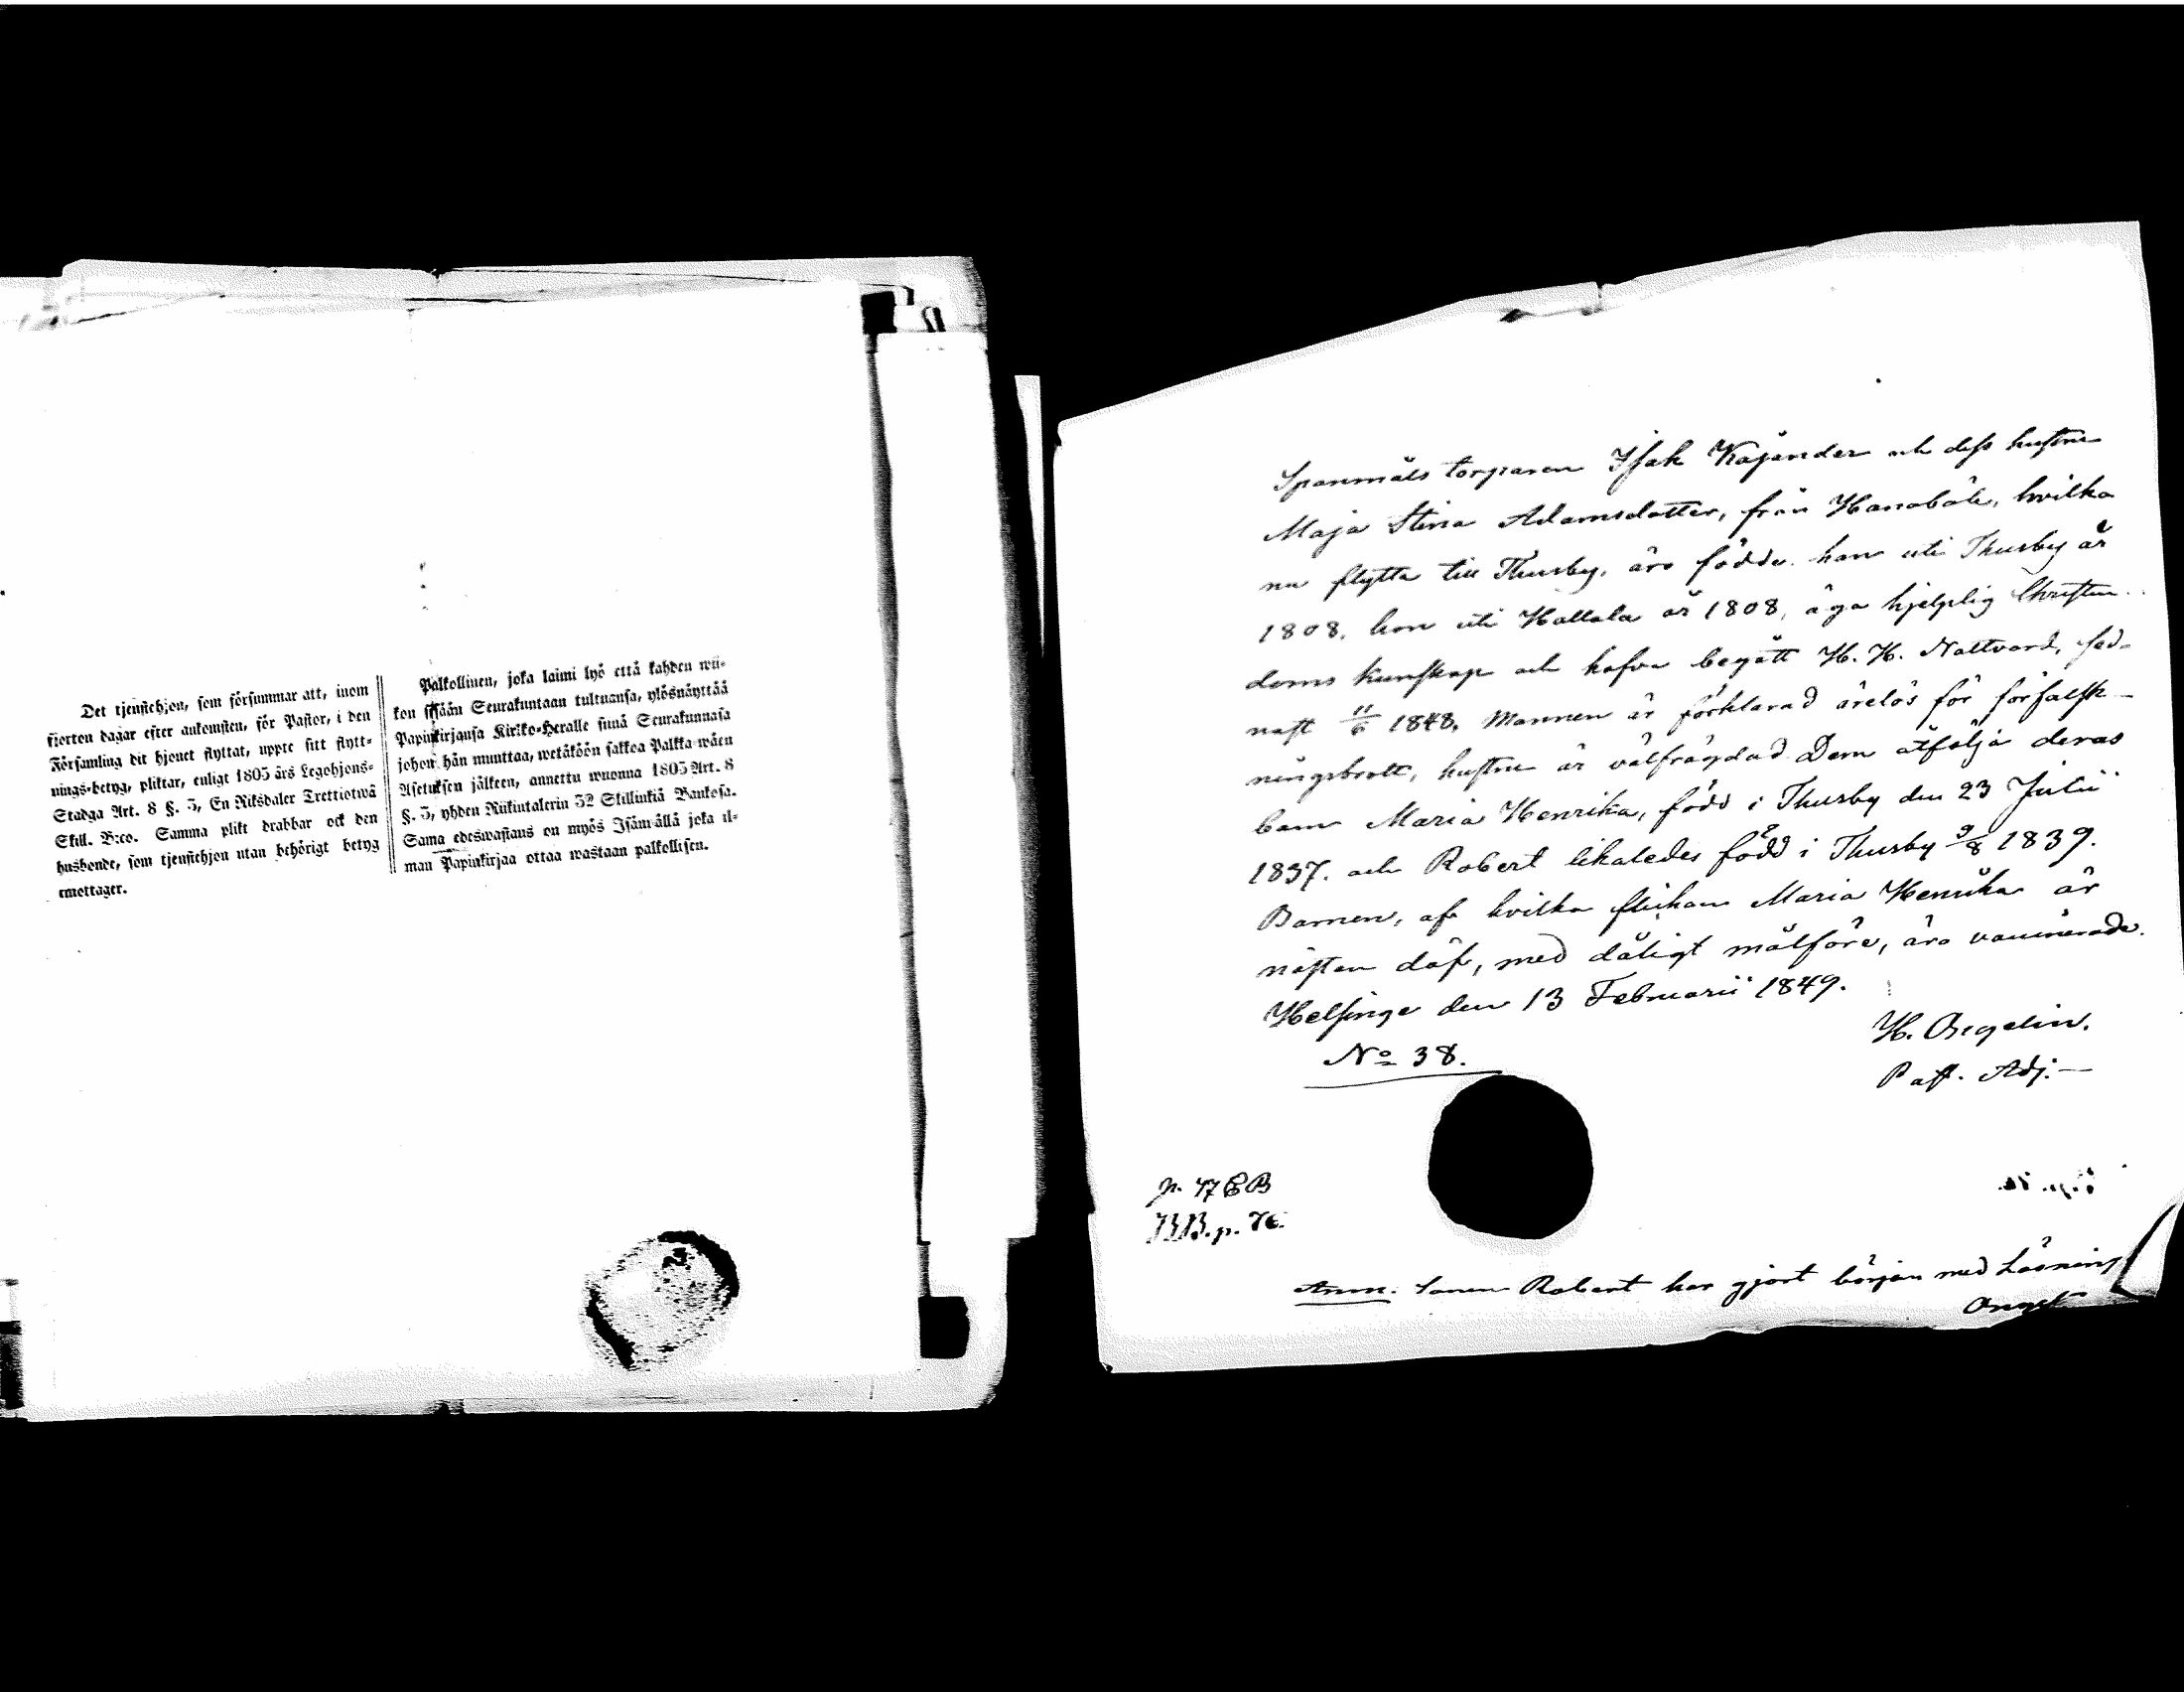 Det tjenstehjon, som försummar att, inom
fjorton dagar efter ankomsten, för Pastor, i den
Församling dit hjonet flyttat, uppte sitt flytt-
nings-betyg, pliktar, enligt 1805 års Legohjons-
Stadga Art. 8 §. 5, En Riksdaler Trettiotwå
Skill. B:co. Samma plikt drabbar ock den
husbonde, som tjenstehjon utan behörigt betyg
emottager.
Palkollinen, joka laimi lyö että kahden wii-
kon sisään Seurakuntaan tultuansa, ylösnäyttää
Papinkirjansa Kirkko-Herralle siinä Seurakunnasa
johon hän muuttaa, wetäköön sakkoa Palkka-wäen
Asetuksen jälkeen, annettu wuonna 1805 Art. 8
§. 5, yhden Riikintalerin 32 Skillinkiä Bankosa.
Sama edeswastaus on myös Isännällä joka il-
man Papinkirjaa ottaa wastaan palkollisen.
Spanmåls torparen Isak Kajander och dess hustru
Maja Stina Adamsdotter, från Hanaböle, hvilka
nu flytta till Thusby, äro födde han uti Thusby år
1808, hon uti Hattula år 1808, äga hjelplig Christen-
doms kunskap och hafva begått H. H. Nattvard, sed-
nast 11/6 1848. Mannen är förklarad ärelös för förfalsk-
ningsbrott, hustrun är välfrägdad. Dem åtfölja deras
barn Maria Henrika, född i Thusby den 23 Julii
1837. och Robert likaledes född i Thusby 9/8 1839.
Barnen, af hvilka flickan Maria Henrika är
nästan döf, med dåligt målföre, äro vaccinerade.
Helsinge den 13 Februarii 1849.
H. Orgelin.
No 38.
Past. Adj.
p. 47 CB
Anm. Sonen Robert har gjort början med Läsning